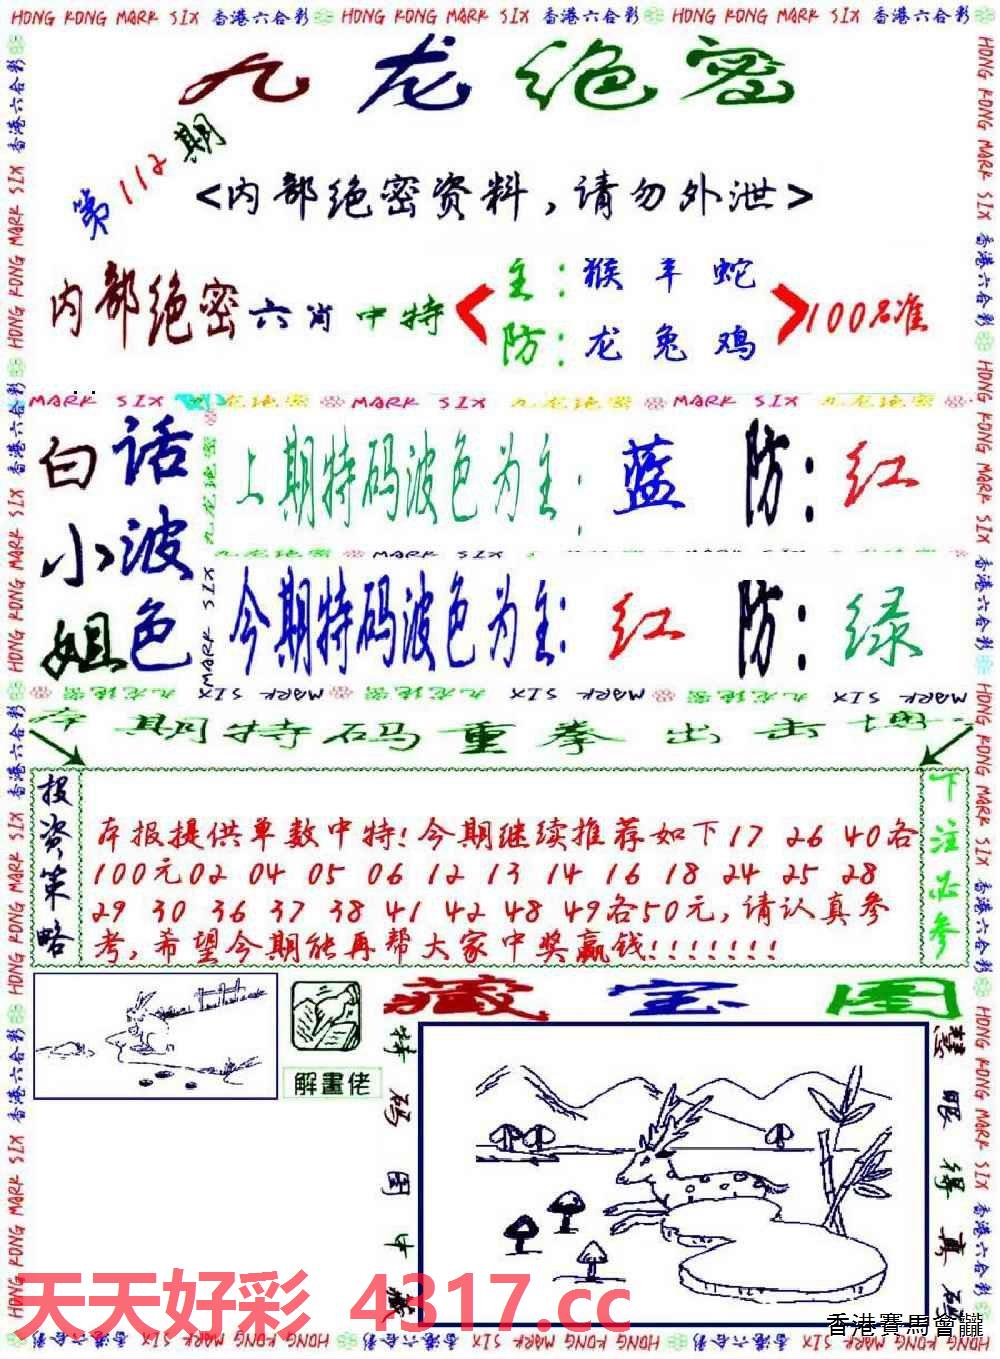 HONG KONG MARK SIX 香港六合彩 HONG KONG MARK SIX 香港六合彩 HONG KONG MARK SIX 香港六合彩
九龙绝密
第112期
<内部绝密资料,请勿外泄>
内部绝密六肖中特
主:猴 羊 蛇
防:龙 兔 鸡
100%准
MARK SIX 九龙绝密 MARK SIX 九龙绝密 MARK SIX 九龙绝密
白小姐
话波色
上期特码波色为主: 蓝 防:红
九龙绝密 MARK SIX 九龙绝密 MARK SIX 九龙绝密
今期特码波色为主: 红 防:绿
本期特码重拳出击
投资策略
本报提供单数中特!今期继续推荐如下17 26 40各
100元02 04 05 06 12 13 14 16 18 24 25 28
29 30 36 37 38 41 42 48 49各50元,请认真参
考,希望今期能再帮大家中奖赢钱!!!!!!!
下注必参
解畫佬
藏宝图
特码图中藏
慧眼得真码
天天好彩 4317.cc
香港賽馬會
HONG KONG MARK SIX 香港六合彩